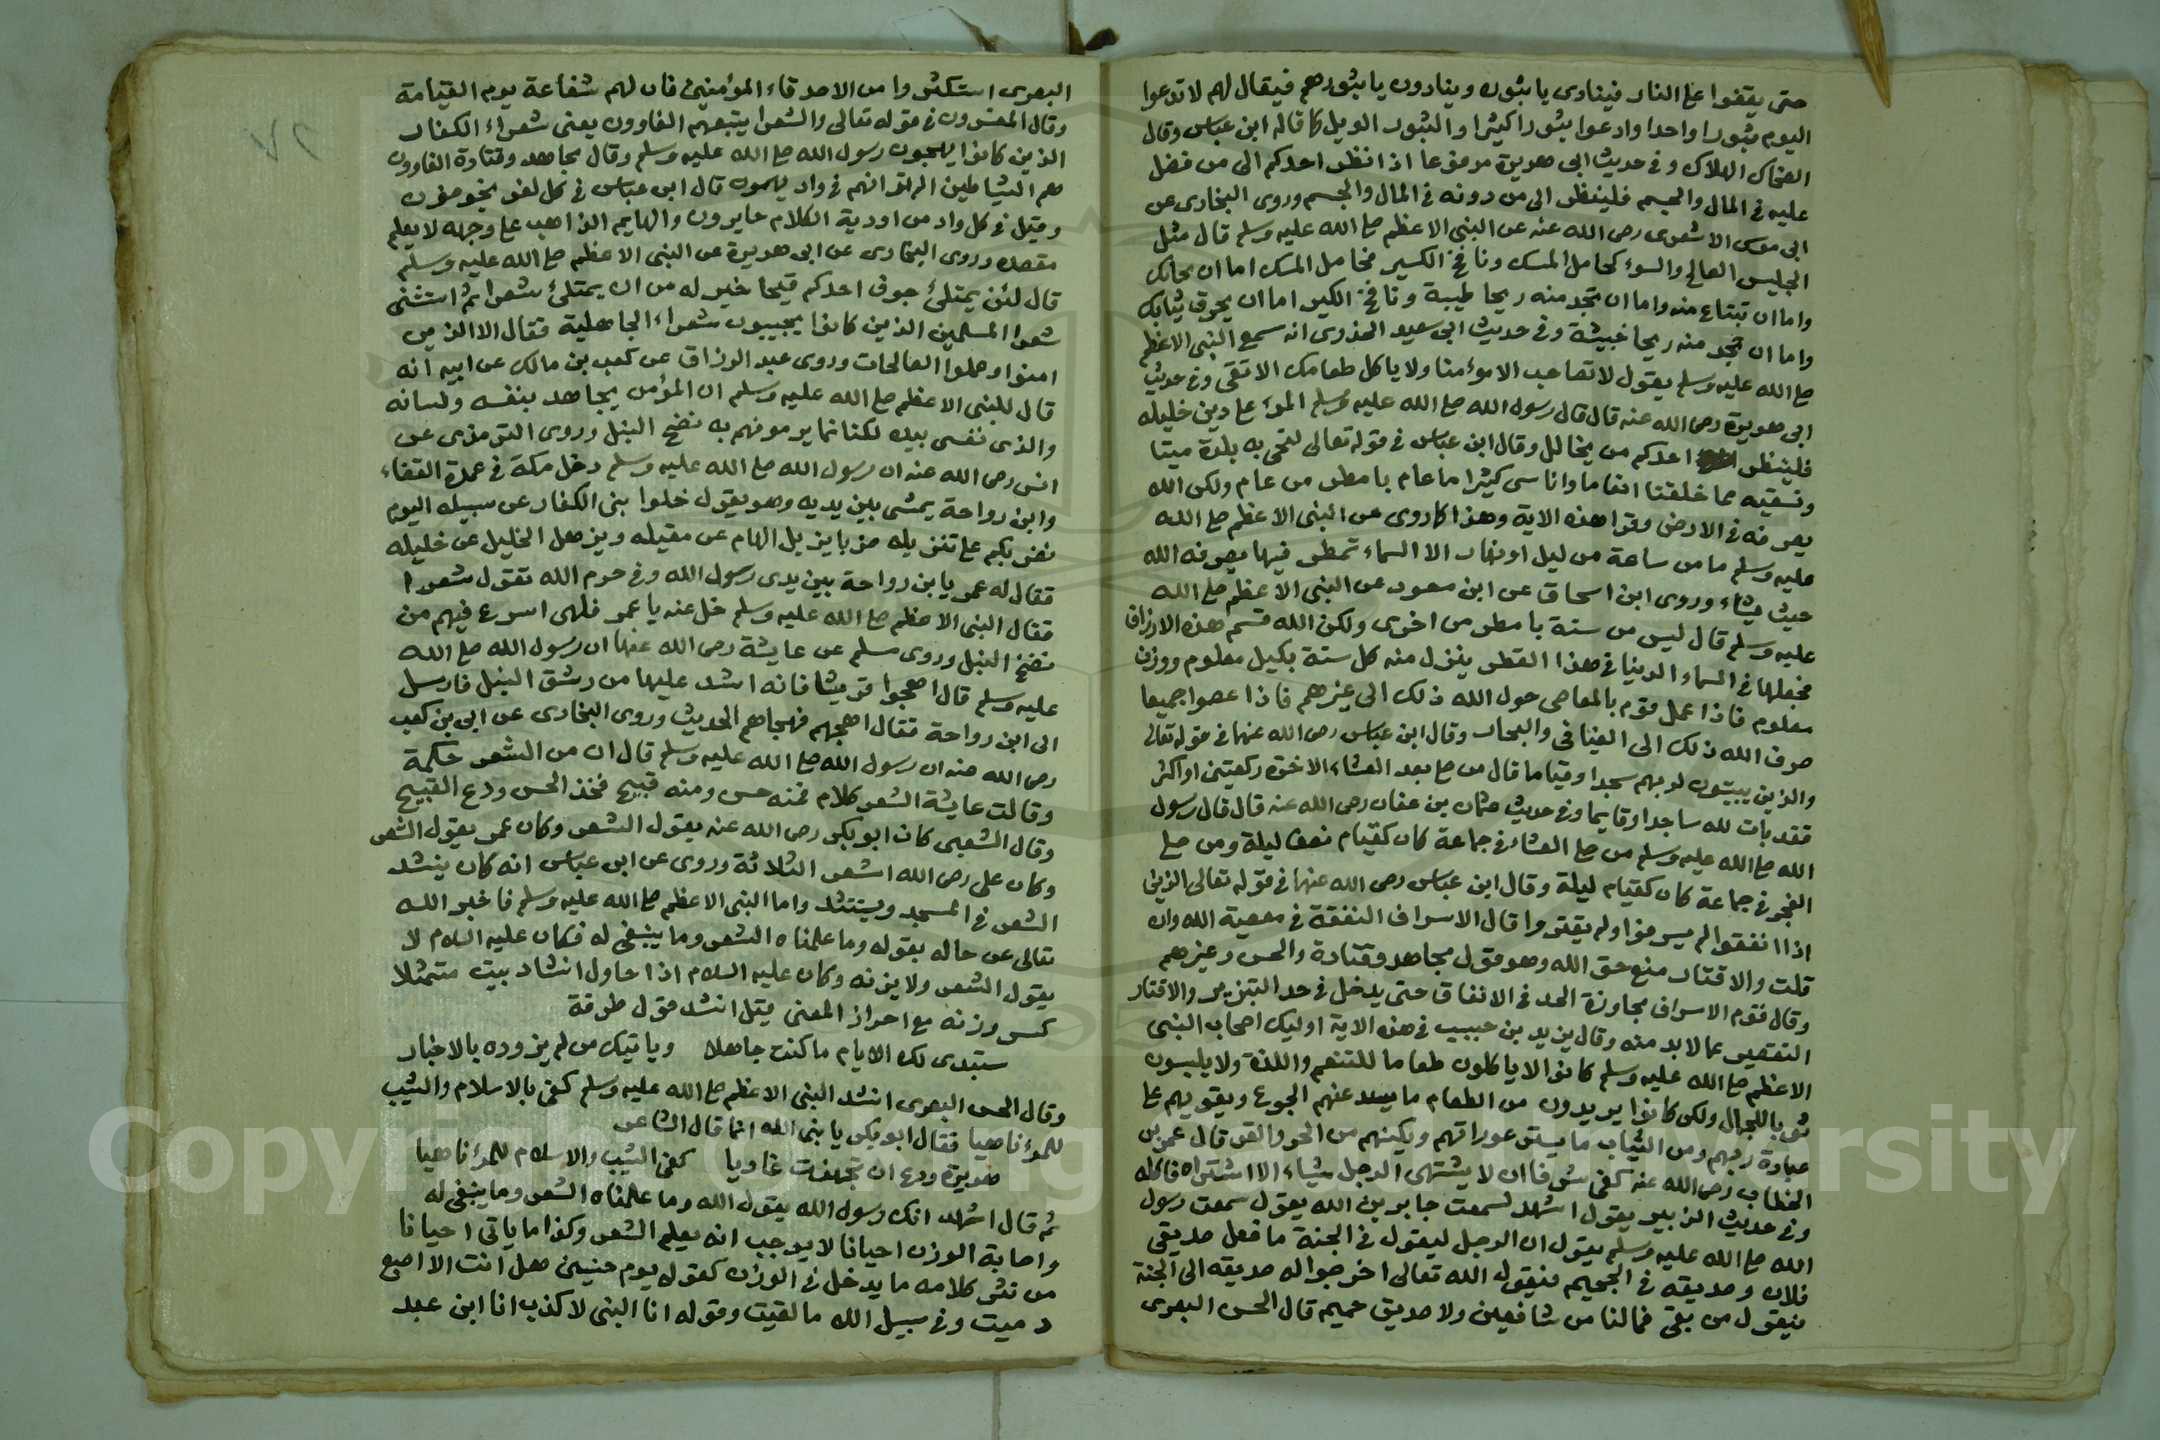 حتى يقفوا على النار فينادى يا ثبوره وينادون يا ثبورهم فيقال لهم لا تدعوا
اليوم ثبورا واحدا وادعوا ثبورا كثيرا والثبور الويل كما قاله ابن عباس وقال
الضحاك الهلاك وفى حديث ابى هريرة مرفوعا اذا نظر احدكم الى من فضل
عليه فى المال والجسم فلينظر الى من دونه فى المال والجسم وروى البخارى عن
ابى موسى الاشعرى رضى الله عنه عن النبى الاعظم صلى الله عليه وسلم قال مثل
الجليس الصالح والسوء كحامل المسك ونافخ الكير فحامل المسك اما ان يحذيك
واما ان تبتاع منه واما ان تجد منه ريحا طيبة ونافخ الكير اما ان يحرق ثيابك
واما ان تجد منه ريحا خبيثة وفى حديث ابى سعيد الخدرى انه سمع النبى الاعظم
صلى الله عليه وسلم يقول لا تصاحب الا مؤمنا ولا ياكل طعامك الا تقى وفى حديث
ابى هريرة رضى الله عنه قال قال رسول الله صلى الله عليه وسلم المرء على دين خليله
فلينظر احدكم من يخالل وقال ابن عباس فى قوله تعالى لنحى به بلدة ميتا
ونسقيه مما خلقنا انعاما واناسى كثيرا ما عام بامطر من عام ولكن الله
يصرفه فى الارض وقرا هذه الاية وهذا كما روى عن النبى الاعظم صلى الله
عليه وسلم ما من ساعة من ليل او نهار الا السماء تمطر فيها يصرفه الله
حيث يشاء وروى ابن اسحاق عن ابن مسعود عن النبى الاعظم صلى الله
عليه وسلم قال ليس من سنة بامطر من اخرى ولكن الله قسم هذه الارزاق
فجعلها فى السماء الدنيا فى هذا القطر ينزل منه كل سنة بكيل معلوم ووزن
معلوم فاذا عمل قوم بالمعاصى حول الله ذلك الى غيرهم فاذا عصوا جميعا
صرف الله ذلك الى الفيافى والبحار وقال ابن عباس رضى الله عنهما فى قوله تعالى
والذين يبيتون لربهم سجدا وقياما قال من صلى بعد العشاء الاخرة ركعتين او اكثر
فقد بات لله ساجدا وقايما وفى حديث عثمان بن عفان رضى الله عنه قال قال رسول
الله صلى الله عليه وسلم من صلى العشاء فى جماعة كان كقيام نصف ليلة ومن صلى
الفجر فى جماعة كان كقيام ليلة وقال ابن عباس رضى الله عنهما فى قوله تعالى الذين
اذا انفقوا لم يسرفوا ولم يقتروا قال الاسراف النفقة فى معصية الله وان
قلت والاقتار منع حق الله وهو قول مجاهد وقتادة والحسن وغيرهم
وقال قوم الاسراف مجاوزة الحد فى الانفاق حتى يدخل فى حد التبذير والاقتار
التقصير عما لابد منه وقال يزيد بن حبيب فى هذه الاية اوليك اصحاب النبى
الاعظم صلى الله عليه وسلم كانوا لا ياكلون طعاما للتنعم واللذة ولا يلبسون
ثوبا للجمال ولكن كانوا يريدون من الطعام ما يسد عنهم الجوع ويقويهم على
عبادة ربهم ومن الثياب ما يستر عوراتهم ويكنهم من الحر والقر قال عمر بن
الخطاب رضى الله عنه كفى سرفا ان لا يشتهى الرجل شيئا الا اشتراه فاكله
وفى حديث الزبير يقول اشهد لسمعت جابر بن الله يقول سمعت رسول
الله صلى الله عليه وسلم يقول ان الرجل ليقول فى الجنة ما فعل صديقى
فلان وصديقه فى الجحيم فيقول الله تعالى اخرجوا له صديقه الى الجنة
فيقول من بقى فما لنا من شافعين ولا صديق حميم قال الحسن البصرى
البصرى استكثروا من الاصدقاء المؤمنين فان لهم شفاعة يوم القيامة
وقال المفسرون فى قوله تعالى والشعرا يتبعهم الغاوون يعنى شعراء الكفار
الذين كانوا يهجون رسول الله صلى الله عليه وسلم وقال مجاهد وقتادة الغاوون
هم الشياطين الم تر انهم فى واد يهيمون قال ابن عباس فى كل لغو يخوضون
وقيل فى كل واد من اودية الكلام حايرون والهايم الذاهب على وجهه لا يعلم
مقصده وروى البخارى عن ابى هريرة عن النبى الاعظم صلى الله عليه وسلم
قال لئن يمتلئ جوف احدكم قيحا خير له من ان يمتلئ شعرا ثم استثنى
شعرا المسلمين الذين كانوا يجيبون شعراء الجاهلية فقال الا الذين
امنوا وعملوا الصالحات وروى عبد الرزاق عن كعب بن مالك عن ابيه انه
قال للنبى الاعظم صلى الله عليه وسلم ان المؤمن يجاهد بنفسه ولسانه
والذى نفسى بيده لكنانما يرموفهم به نضح النبل وروى الترمذى عن
انس رضى الله عنه ان رسول الله صلى الله عليه وسلم دخل مكة فى عمرة القضاء
وابن رواحة يمشى بين يديه وهو يقول خلوا بنى الكفار عن سبيله اليوم
نضربكم على تنزيله ضربا يزيل الهام عن مقيله ويذهل الخليل عن خليله
فقال له عمر يا بن رواحة بين يدى رسول الله وفى حرم الله تقول شعرا
فقال النبى الاعظم صلى الله عليه وسلم خل عنه يا عمر فلهى اسرع فيهم من
نضح النبل وروى مسلم عن عايشة رضى الله عنها ان رسول الله صلى الله
عليه وسلم قال اهجوا قريشا فانه اشد عليها من رشق النبل فارسل
الى ابن رواحة فقال اهجهم فهجاهم الحديث وروى البخارى عن ابى بن كعب
رضى الله عنه ان رسول الله صلى الله عليه وسلم قال ان من الشعر حكمة
وقالت عايشة الشعر كلام فمنه حسن ومنه قبيح فخذ الحسن ودع القبيح
وقال الشعبى كان ابو بكر رضى الله عنه يقول الشعر وكان عمر يقول الشعر
وكان على رضى الله اشعر الثلاثة وروى عن ابن عباس انه كان ينشد
الشعر فى المسجد ويستنشد واما النبى الاعظم صلى الله عليه وسلم فاخبر الله
تعالى عن حاله بقوله وما علمناه الشعر وما ينبغى له فكان عليه السلام لا
يقول الشعر ولا يزنه وكان عليه السلام اذا حاول انشاد بيت متمثلا
كسر وزنه مع احراز المعنى يتل انشد قول طرفة
ستبدى لك الايام ما كنت جاهلا وياتيك من لم يزوده بالاخبار
وقال الحسن البصرى انشد النبى الاعظم صلى الله عليه وسلم كفى بالاسلام والشيب
للمرء ناهيا فقال ابو بكر يا نبى الله انما قال الشاعر
هويرة ودع ان تجهزت غاديا كفى الشيب والاسلام للمرء ناهيا
ثم قال اشهد انك رسول الله يقول الله وما علمناه الشعر وما ينبغى له
واصابة الوزن احيانا لا يوجب انه يعلم الشعر وكذا ما ياتى احيانا
من نثر كلامه ما يدخل فى الوزن كقوله يوم حنين هل انت الا اصبع
دميت وفى سبيل الله ما لقيت وقوله انا النبى لا كذب انا ابن عبد